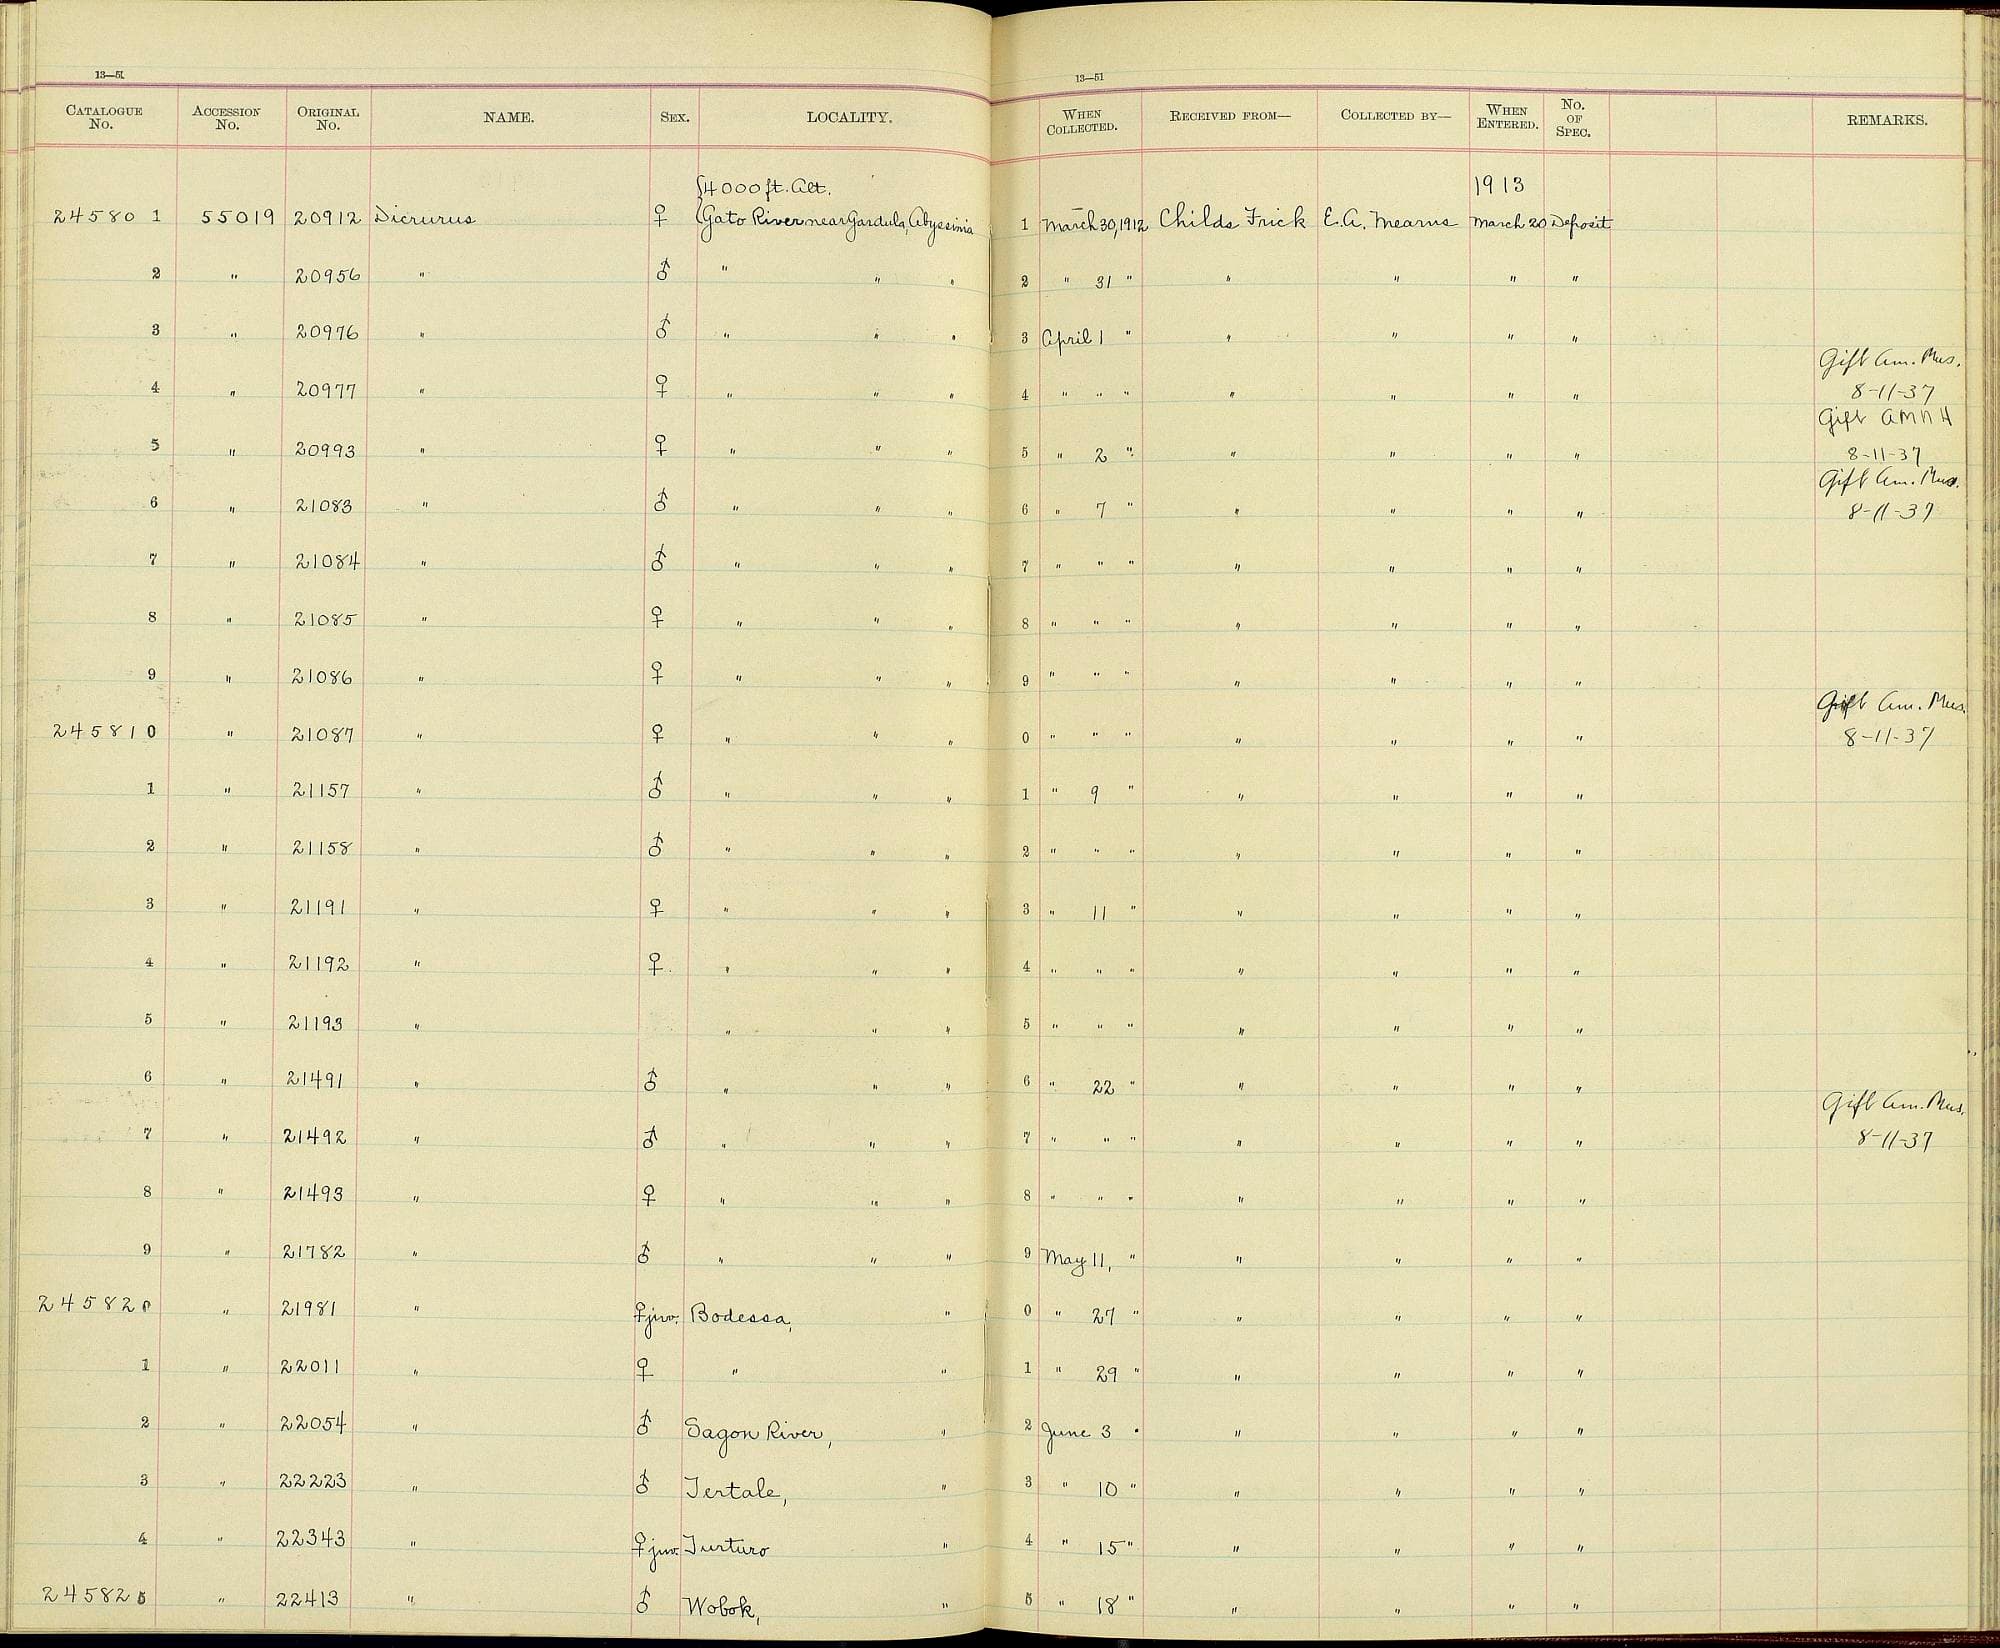 13—51
CATALOGUE No. ACCESSION No. ORIGINAL No. NAME. SEX. LOCALITY.
4000 ft. Alt.
24580 1 55019 20912 Dicrurus ♀ Gato River near Gardula, Abyssinia
2 " 20956 " ♂ " " "
3 " 20976 " ♂ " " "
4 " 20977 " ♀ " " "
5 " 20993 " ♀ " " "
6 " 21083 " ♂ " " "
7 " 21084 " ♂ " " "
8 " 21085 " ♀ " " "
9 " 21086 " ♀ " " "
24581 0 " 21087 " ♀ " " "
1 " 21157 " ♂ " " "
2 " 21158 " ♂ " " "
3 " 21191 " ♀ " " "
4 " 21192 " ♀ " " "
5 " 21193 " " " "
6 " 21491 " ♂ " " "
7 " 21492 " ♂ " " "
8 " 21493 " ♀ " " "
9 " 21782 " ♂ " " "
24582 0 " 21981 " ♀ juv. Bodessa, "
1 " 22011 " ♀ " "
2 " 22054 " ♂ Sagon River, "
3 " 22223 " ♂ Tertale, "
4 " 22343 " ♀ juv. Turturo "
24582 5 " 22413 " ♂ Wobok, "
13—51
WHEN COLLECTED. RECEIVED FROM— COLLECTED BY— WHEN ENTERED. No. OF SPEC. REMARKS.
1913
1 March 30, 1912 Childs Frick E.A. Mearns March 20 Deposit
2 " 31 " " " " "
3 April 1 " " " " "
Gift Am. Mus.
4 " " " " " " " 8-11-37
Gift AMNH
5 " 2 " " " " " 8-11-37
Gift Am. Mus.
6 " 7 " " " " " 8-11-37
7 " " " " " " "
8 " " " " " " "
9 " " " " " " "
Gift Am. Mus.
0 " " " " " " " 8-11-37
1 " 9 " " " " "
2 " " " " " " "
3 " 11 " " " " "
4 " " " " " " "
5 " " " " " " "
6 " 22 " " " " "
Gift Am. Mus.
7 " " " " " " " 8-11-37
8 " " " " " " "
9 May 11, " " " " "
0 " 27 " " " " "
1 " 29 " " " " "
2 June 3 " " " " "
3 " 10 " " " " "
4 " 15 " " " " "
5 " 18 " " " " "